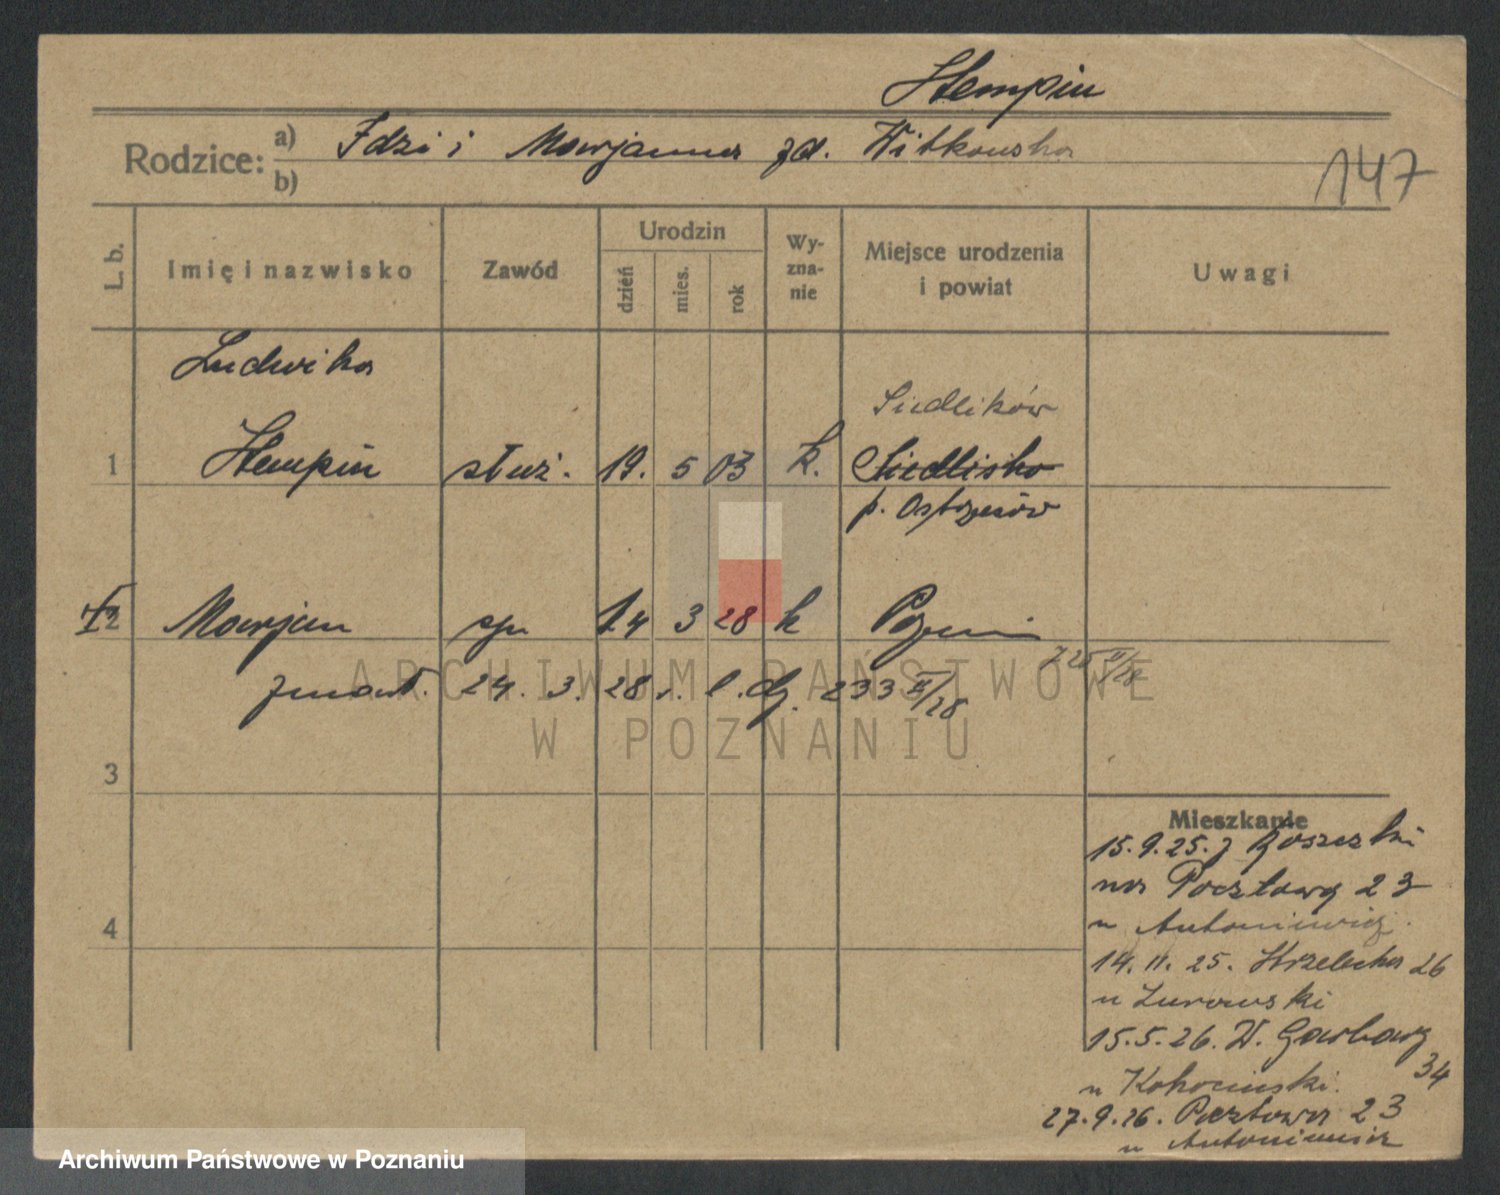 Hempin
Rodzice: a) Idzi i Marjanna zd. Witkowska
b)
147
L. b.
Imię i nazwisko
Zawód
Urodzin
dzień
mies.
rok
Wy-
zna-
nie
Miejsce urodzenia
i powiat
Uwagi
Ludwika
Siedlików
1 Hempin służ. 19. 5 03 k. Siedlisko
p. Ostrzeszów
2 Marjan syn 14 3 28 k Poznań
zmarł. 24. 3. 28 r. l. dz. 233 II/28
3
4
Mieszkanie
15.9.25. z
na Pocztową 23
u Antoniewicz.
14. 11. 25. Strzelecka 26
u Żurowski
15.5.26. W. Garbary
34
u Kokociński.
27.9.26. Pocztowa 23
u Antoniewicz
ARCHIWUM PAŃSTWOWE
W POZNANIU
Archiwum Państwowe w Poznaniu